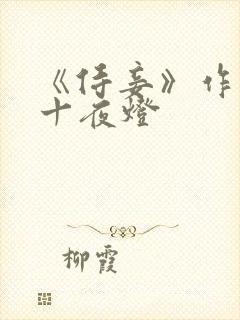 《侍妾》作
十夜燈
柳霞